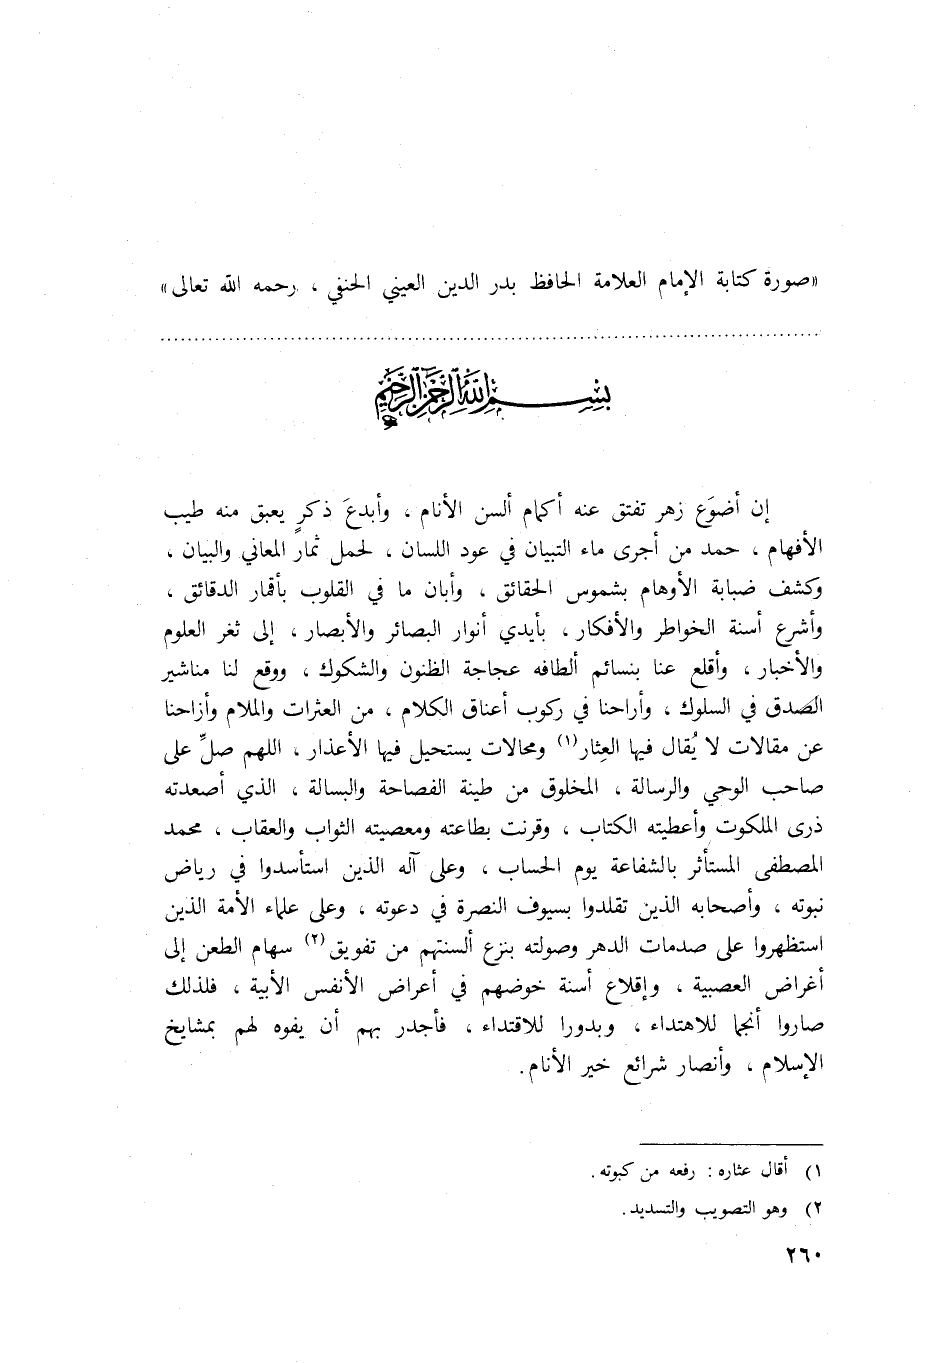 «صورة كتابة الإمام العلامة الحافظ بدر الدين العيني الحنفي ، رحمه الله تعالى»
بسم الله الرحمن الرحيم
إن أضوَع زهر تفتق عنه أكمام ألسن الأنام ، وأبدعَ ذكرٍ يعبق منه طيب
الأفهام ، حمد من أجرى ماء التبيان في عود اللسان ، لحمل ثمار المعاني والبيان ،
وكشف ضبابة الأوهام بشموس الحقائق ، وأبان ما في القلوب بأقمار الدقائق ،
وأشرع أسنة الخواطر والأفكار ، بأيدي أنوار البصائر والأبصار ، إلى ثغر العلوم
والأخبار ، وأقلع عنا بنسائم ألطافه عجاجة الظنون والشكوك ، ووقع لنا مناشير
الصدق في السلوك ، وأراحنا في ركوب أعناق الكلام ، من العثرات والملام وأزاحنا
عن مقالات لا يُقال فيها العِثار(١) ومحالات يستحيل فيها الأعذار ، اللهم صلِّ على
صاحب الوحي والرسالة ، المخلوق من طينة الفصاحة والبسالة ، الذي أصعدته
ذرى الملكوت وأعطيته الكتاب ، وقرنت بطاعته ومعصيته الثواب والعقاب ، محمد
المصطفى المستأثر بالشفاعة يوم الحساب ، وعلى آله الذين استأسدوا في رياض
نبوته ، وأصحابه الذين تقلدوا بسيوف النصرة في دعوته ، وعلى علماء الأمة الذين
استظهروا على صدمات الدهر وصولته بنزع ألسنتهم من تفويق(٢) سهام الطعن إلى
أغراض العصبية ، وإقلاع أسنة خوضهم في أعراض الأنفس الأبية ، فلذلك
صاروا أنجما للاهتداء ، وبدورا للاقتداء ، فأجدر بهم أن يفوه لهم بمشايخ
الإسلام ، وأنصار شرائع خير الأنام.
١) أقال عثاره : رفعه من كبوته.
٢) وهو التصويب والتسديد.
٢٦٠